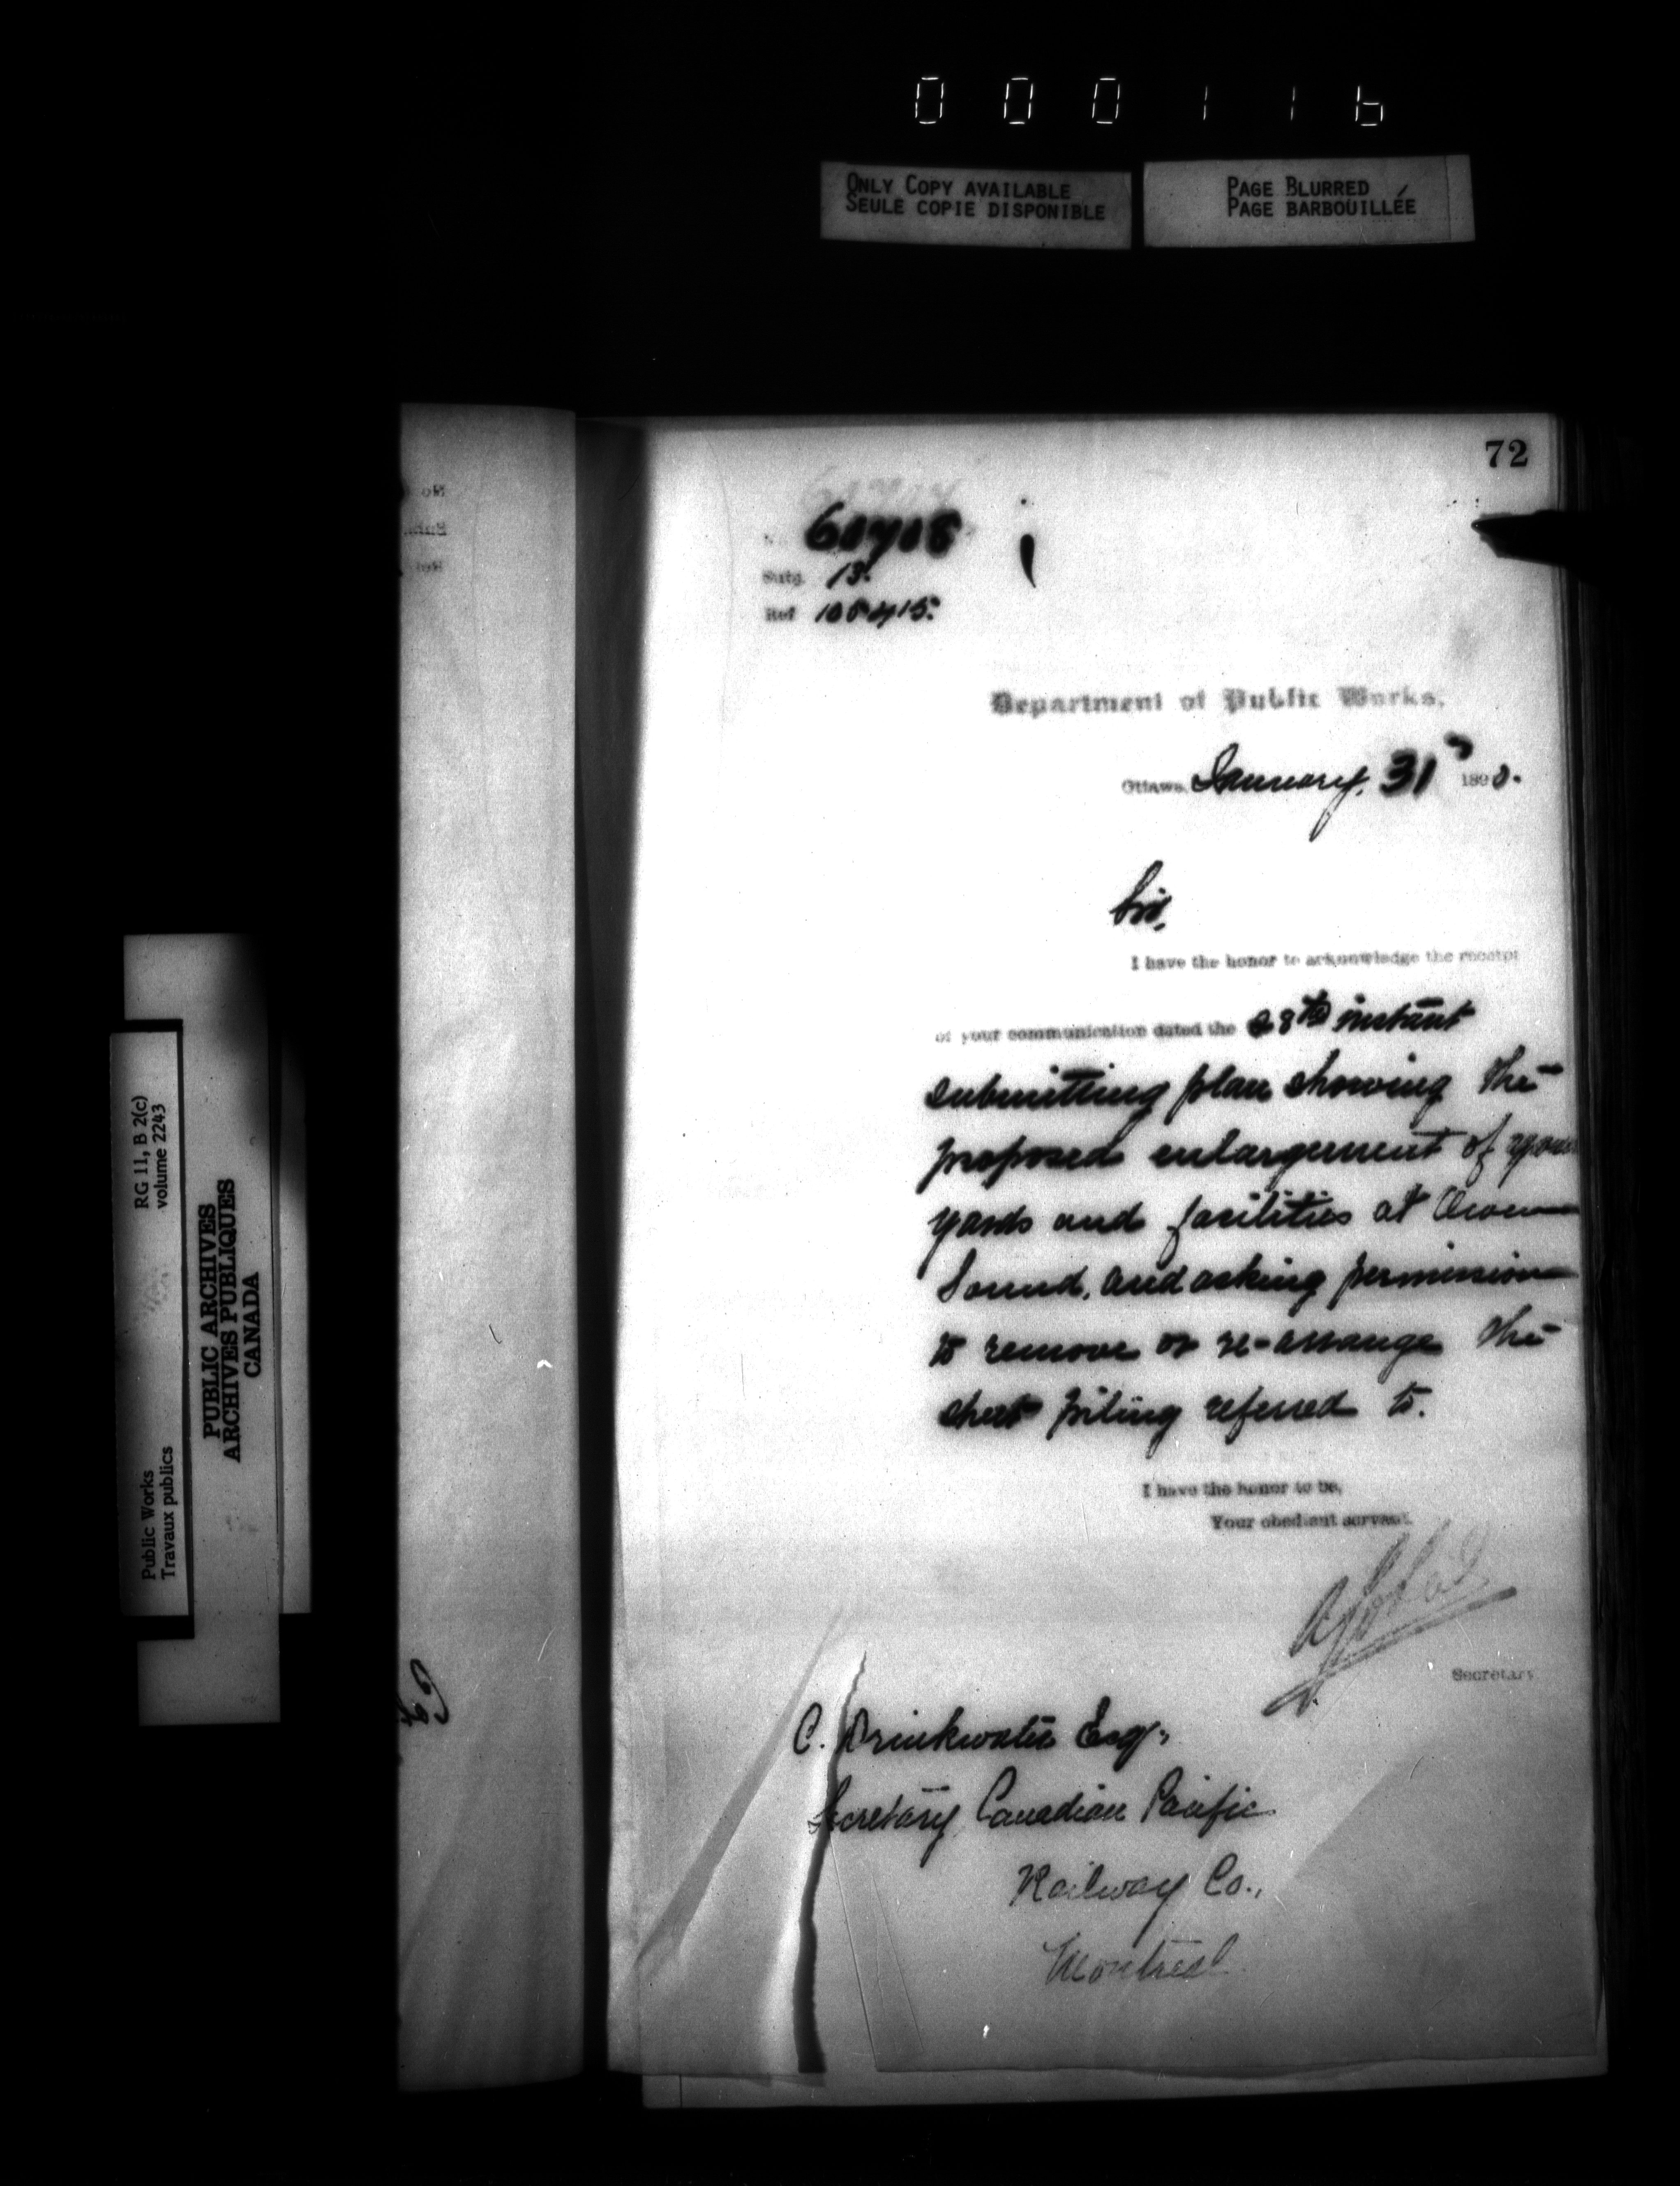 000116
ONLY COPY AVAILABLE
SEULE COPIE DISPONIBLE
PAGE BLURRED
PAGE BARBOUILLÉE
72
60708
Subj. 13.
Ref 105415.
Department of Public Works.
Ottawa, January. 31 1890.
Sir,
I have the honor to acknowledge the receipt
of your communication dated the 28th instant
submitting plan showing the
proposed enlargement of your
yards and facilities at Owen
Sound, and asking permission
to remove or re-arrange the
sheet piling referred to.
I have the honor to be,
Your obedient servant.
Secretary
C. Drinkwater Esq.,
Secretary Canadian Pacific
Railway Co.,
Montreal
RG 11, B 2(c)
volume 2243
Public Works
Travaux publics
PUBLIC ARCHIVES
ARCHIVES PUBLIQUES
CANADA